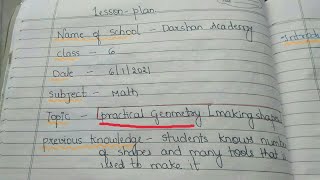 Lesson-plan
Name of school - Darshan Academy
class - 6
Date - 6/1/2021
Subject - Math
Topic - practical Geometry [making shapes
previous knowledge - students knows number
of shapes and many tools that is
used to make it
Introdu